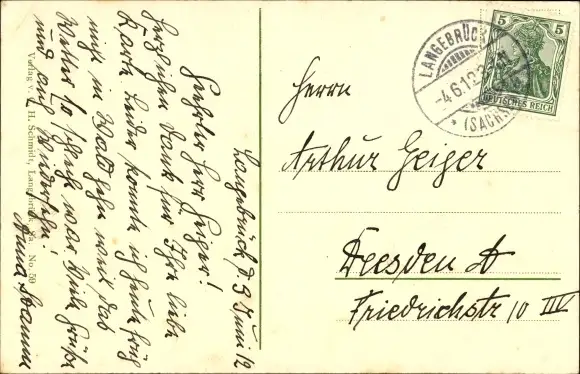 Langebrück d 3 Juni 12
Geehrter Herr Geiger!
Herzlichen Dank für Ihre liebe
Karte. Leider konnte ich heute früh
nicht in Wald gehn weil das
Wetter so schlecht war. Viele Grüße
und auf Wiedersehn!
Anna
Verlag v. H. Schmidt, Langebrück Sa. No. 50
Herrn
Arthur Geiger
Dresden A
Friedrichstr 10 III
LANGEBRÜCK
-4.6.12
* (SACHSEN)
5 5
DEUTSCHES REICH